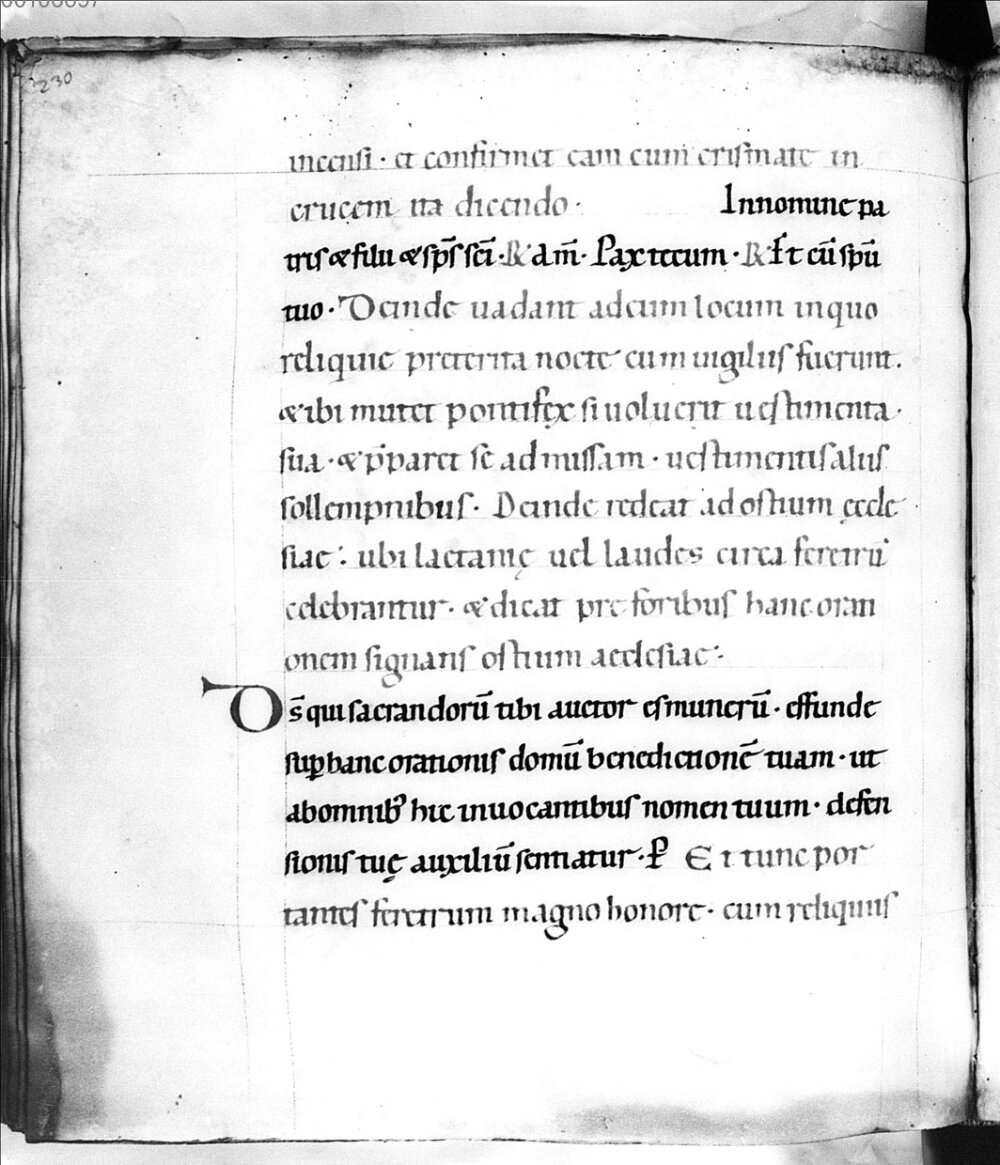 230
incensi · et confirmet eam cum crismate in
crucem ita dicendo · Innomine pa
tris & filii & sp̄s sc̄i · R̸ am̄ · Pax tecum · R̸ Et cū sp̄u
tuo · Deinde uadant ad eum locum in quo
reliquie preterita nocte cum uigiliis fuerunt .
& ibi mutet pontifex si uoluerit uestimenta ·
sua · & p̄paret se ad missam · uestimentis aliis
sollempnibus · Deinde redeat ad ostium ęccle
siae : ubi laetanię uel laudes circa feretrū
celebrantur · & dicat pre foribus hanc orati
onem signans ostium aecclesiae :
Ds̄ qui sacrandorū tibi auctor es munerū · effunde
suꝑ hanc orationis domū benedictionē tuam · ut
ab omnib' hic inuocantibus nomen tuum · defen
sionis tuę auxiliū sentiatur · P̄ Et tunc por
tantes feretrum magno honore · cum reliquiis